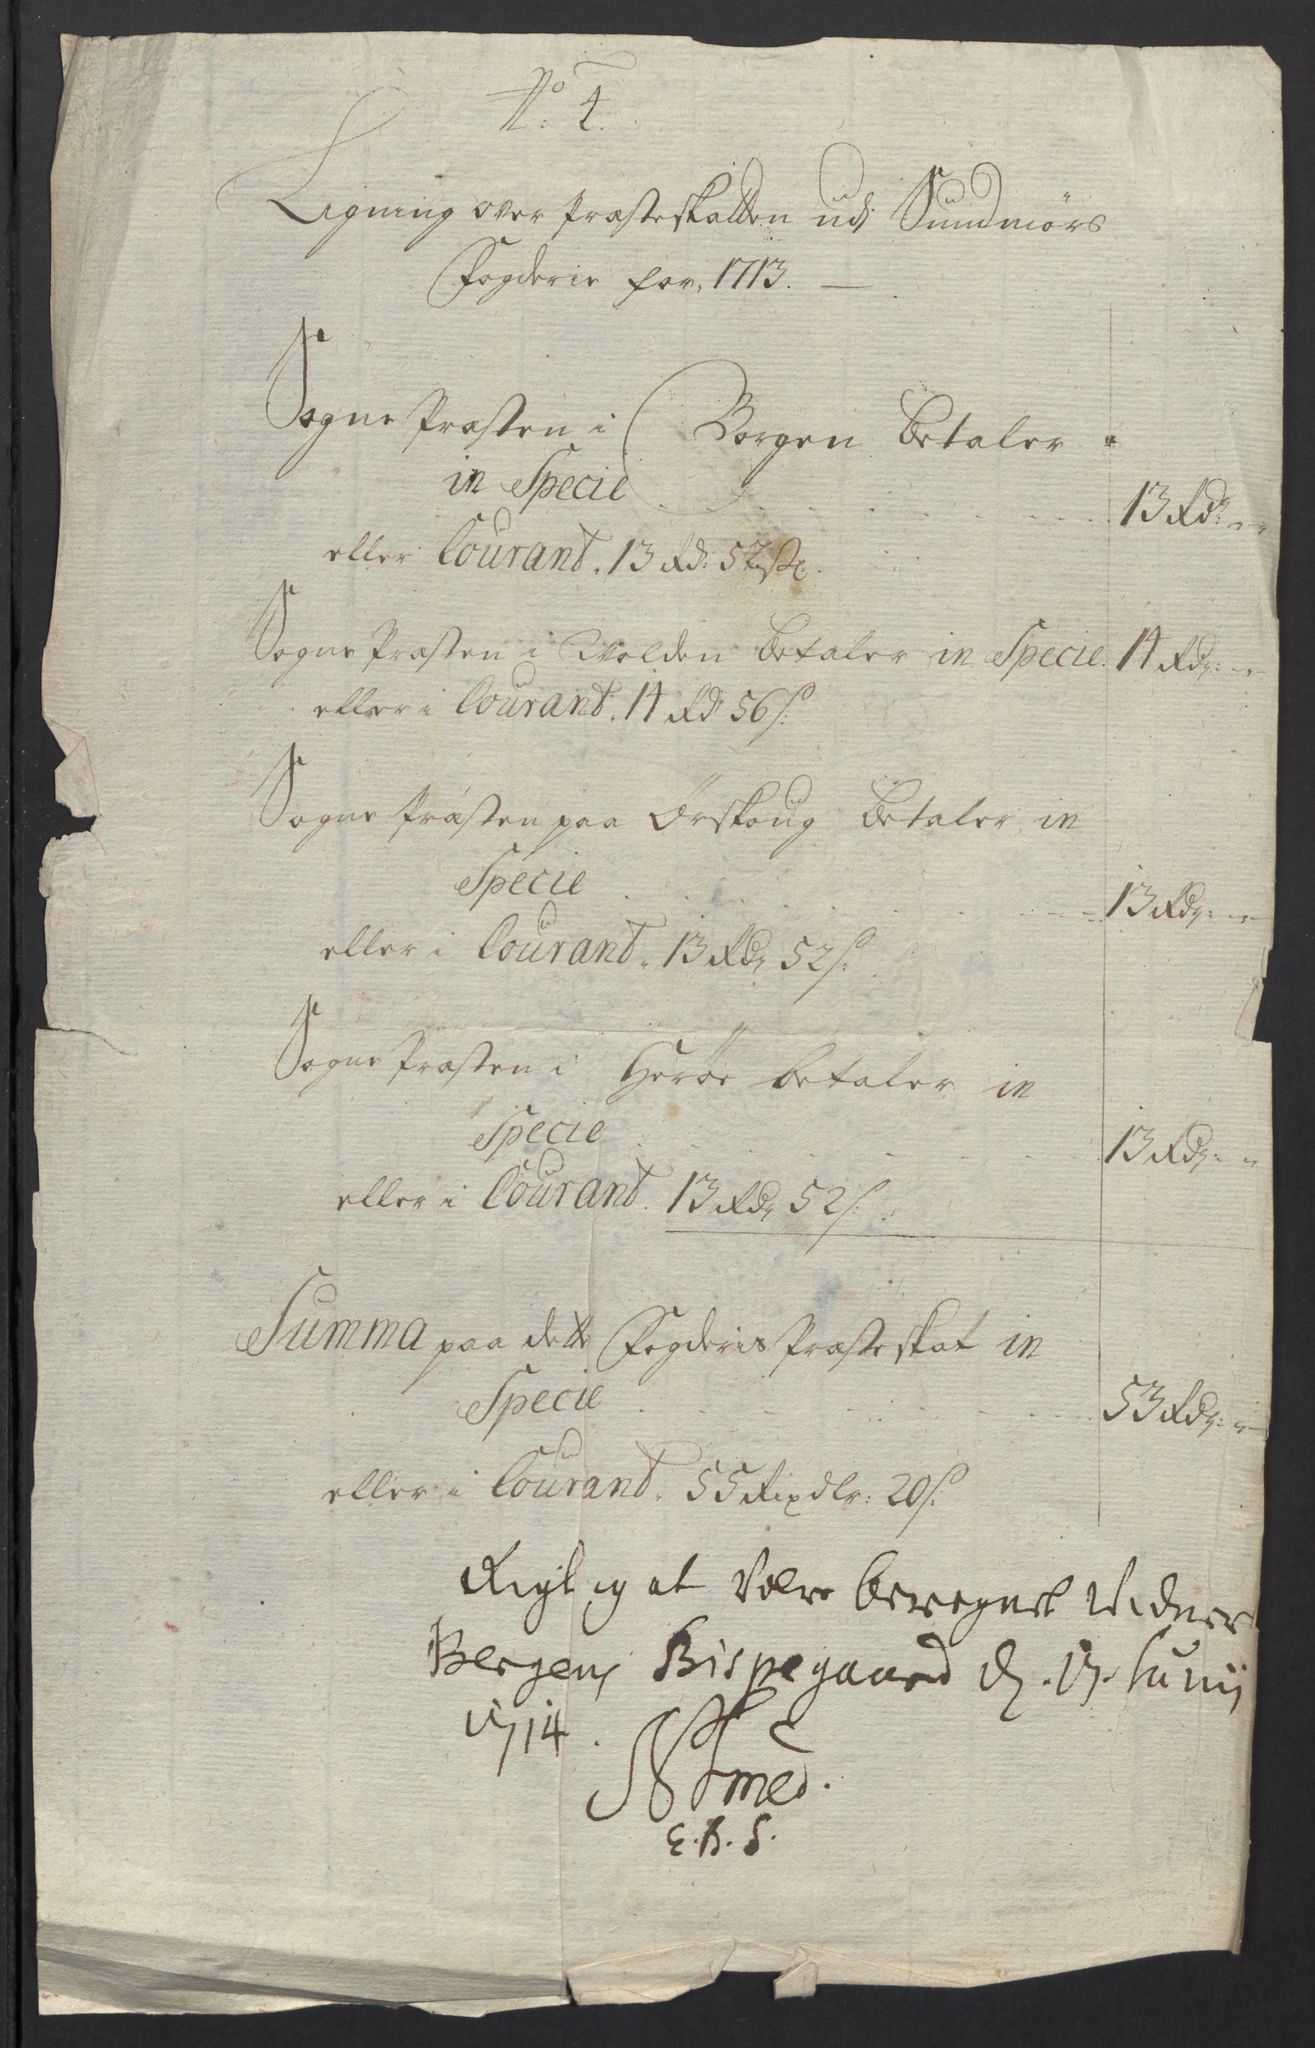 No: 4.
Ligning over Præsteskatten udi Sundmørs
Fogderie for 1713. —
Sogne Præsten i Borgen betaler
in Specie 13 Rdr: -
eller Courant. 13 Rd: 52 sk.
Sogne Præsten i Wolden betaler in Specie. 14 Rdr: -
eller i Courant. 14 Rd 56 s:
Sogne Præsten paa Ørskoug betaler in
Specie 13 Rdr: -
eller i Courant. 13 Rdr 52 s:
Sogne Præsten i Herøe betaler in
Specie 13 Rdr: -
eller i Courant. 13 Rdr 52 s:
Summa paa dette Fogderis Præsteskat in
Specie 53 Rdr: -
eller i Courant. 55 Rixdlr: 20 s:
Rigtig at være beregnet vidner
Bergens Bispegaard d. 17. Junij
1714.
N Smed.